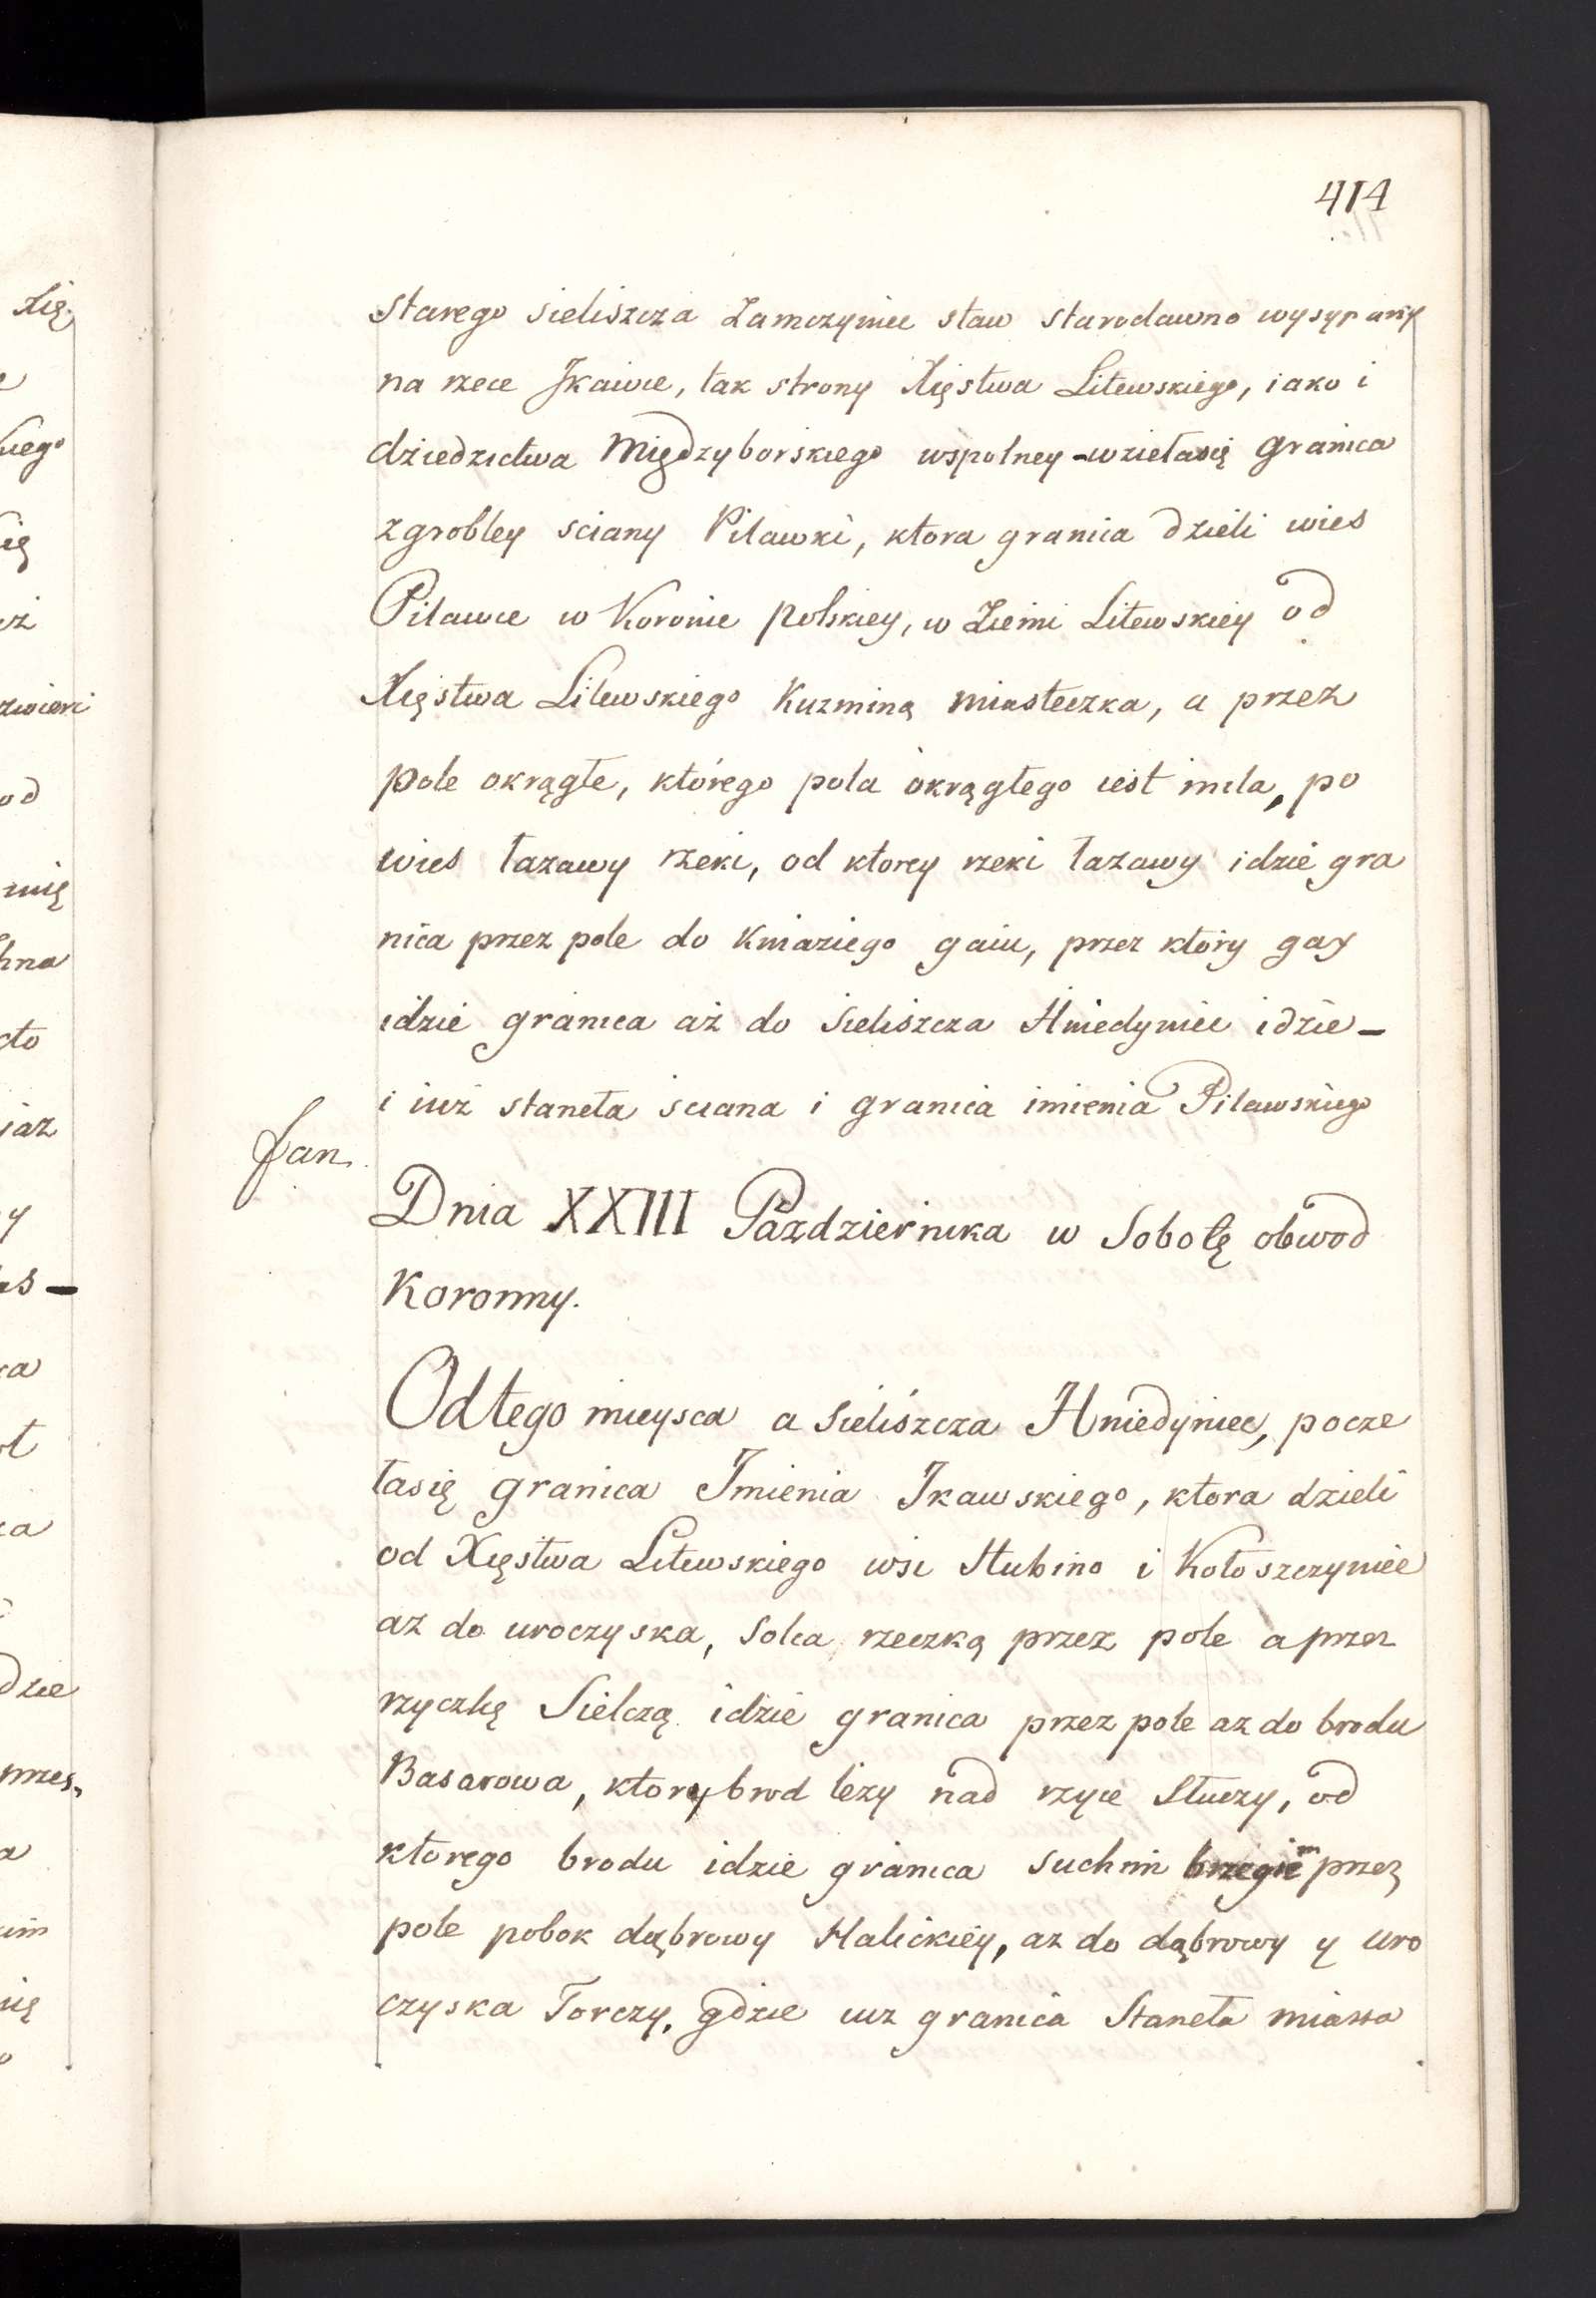 414
starego sieliszcza Zamczyniec staw starodawno wysypany
na rzece Jkawce, tak strony Xięstwa Litewskiego, iako i
dziedzictwa Międzyborskiego wspolney-wziełasię granica
zgrobley sciany Pilawki, ktora granica dzieli wies
Pilawce w Koronie Polskiey, w Ziemi Litewskiey od
Xięstwa Litewskiego Kuzminą miasteczka, a przez
pole okrągłe, którego pola okrągłego iest mila, po
wies łazawy rzeki, od ktorey rzeki łazawy idzie gra
nica przez pole do Kniaziego gaiu, przez który gay
idzie granica aż do Sieliszcza Hniedyniec idzie-
i iuż staneła sciana i granica imienia Pilawskiego
fan.
Dnia XXIII Pazdziernika w Sobotę obwod
Koronny.
Odtego mieysca a Sieliszcza Hniedyniec, pocze
łasię granica Jmienia Jkawskiego, ktora dzieli
od Xięstwa Litewskiego wsi Hubino i Kołoszczyniec
az do uroczyska, Solca rzeczką przez pole a przez
rzyczkę Sielczą idzie granica przez pole az do brodu
Basarowa, ktory brod lezy nad rzyce Słuczy, od
ktorego brodu idzie granica suchim brzegiem przez
pole pobok dąbrowy Halickiey, az do dąbrowy y uro
czyska Torczy, gdzie iuz granica Staneła miasta